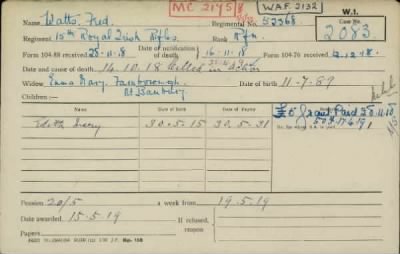 MC 21458 W.A.F. 2132 W.I.
Name Watts, Fred. Regimental No. 52368. Case No.
Regiment 15th Royal Irish Rifles Rank Rfn. 2083
Form 104-88 received 28-11-18 Date of notification of death 16-11-18 Form 104-76 received 12.12.18.
Date and cause of death 14.10.18 Killed in action
Widow Emma Mary, Farnborough, Date of birth 11-7-89
Nr Banbury
Children:— Date of Birth Date of Expiry £5 Grant Paid 20.11.18
Edith Mary 30.5.15 30.5.31
Pension 20/5 a week from 19.5.19
Date awarded 15.5.19 If refused, reason
Papers